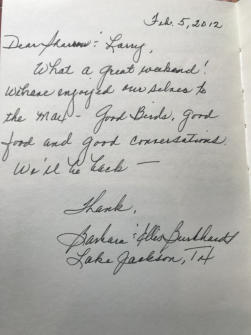 Feb. 5, 2012
Dear Sharron & Larry,
What a great weekend!
We have enjoyed our selves to
the max - Good Birds, good
food and good conversations.
We'll be back —
Thank,
Barbara & Ellis Burkhardt
Lake Jackson, TX